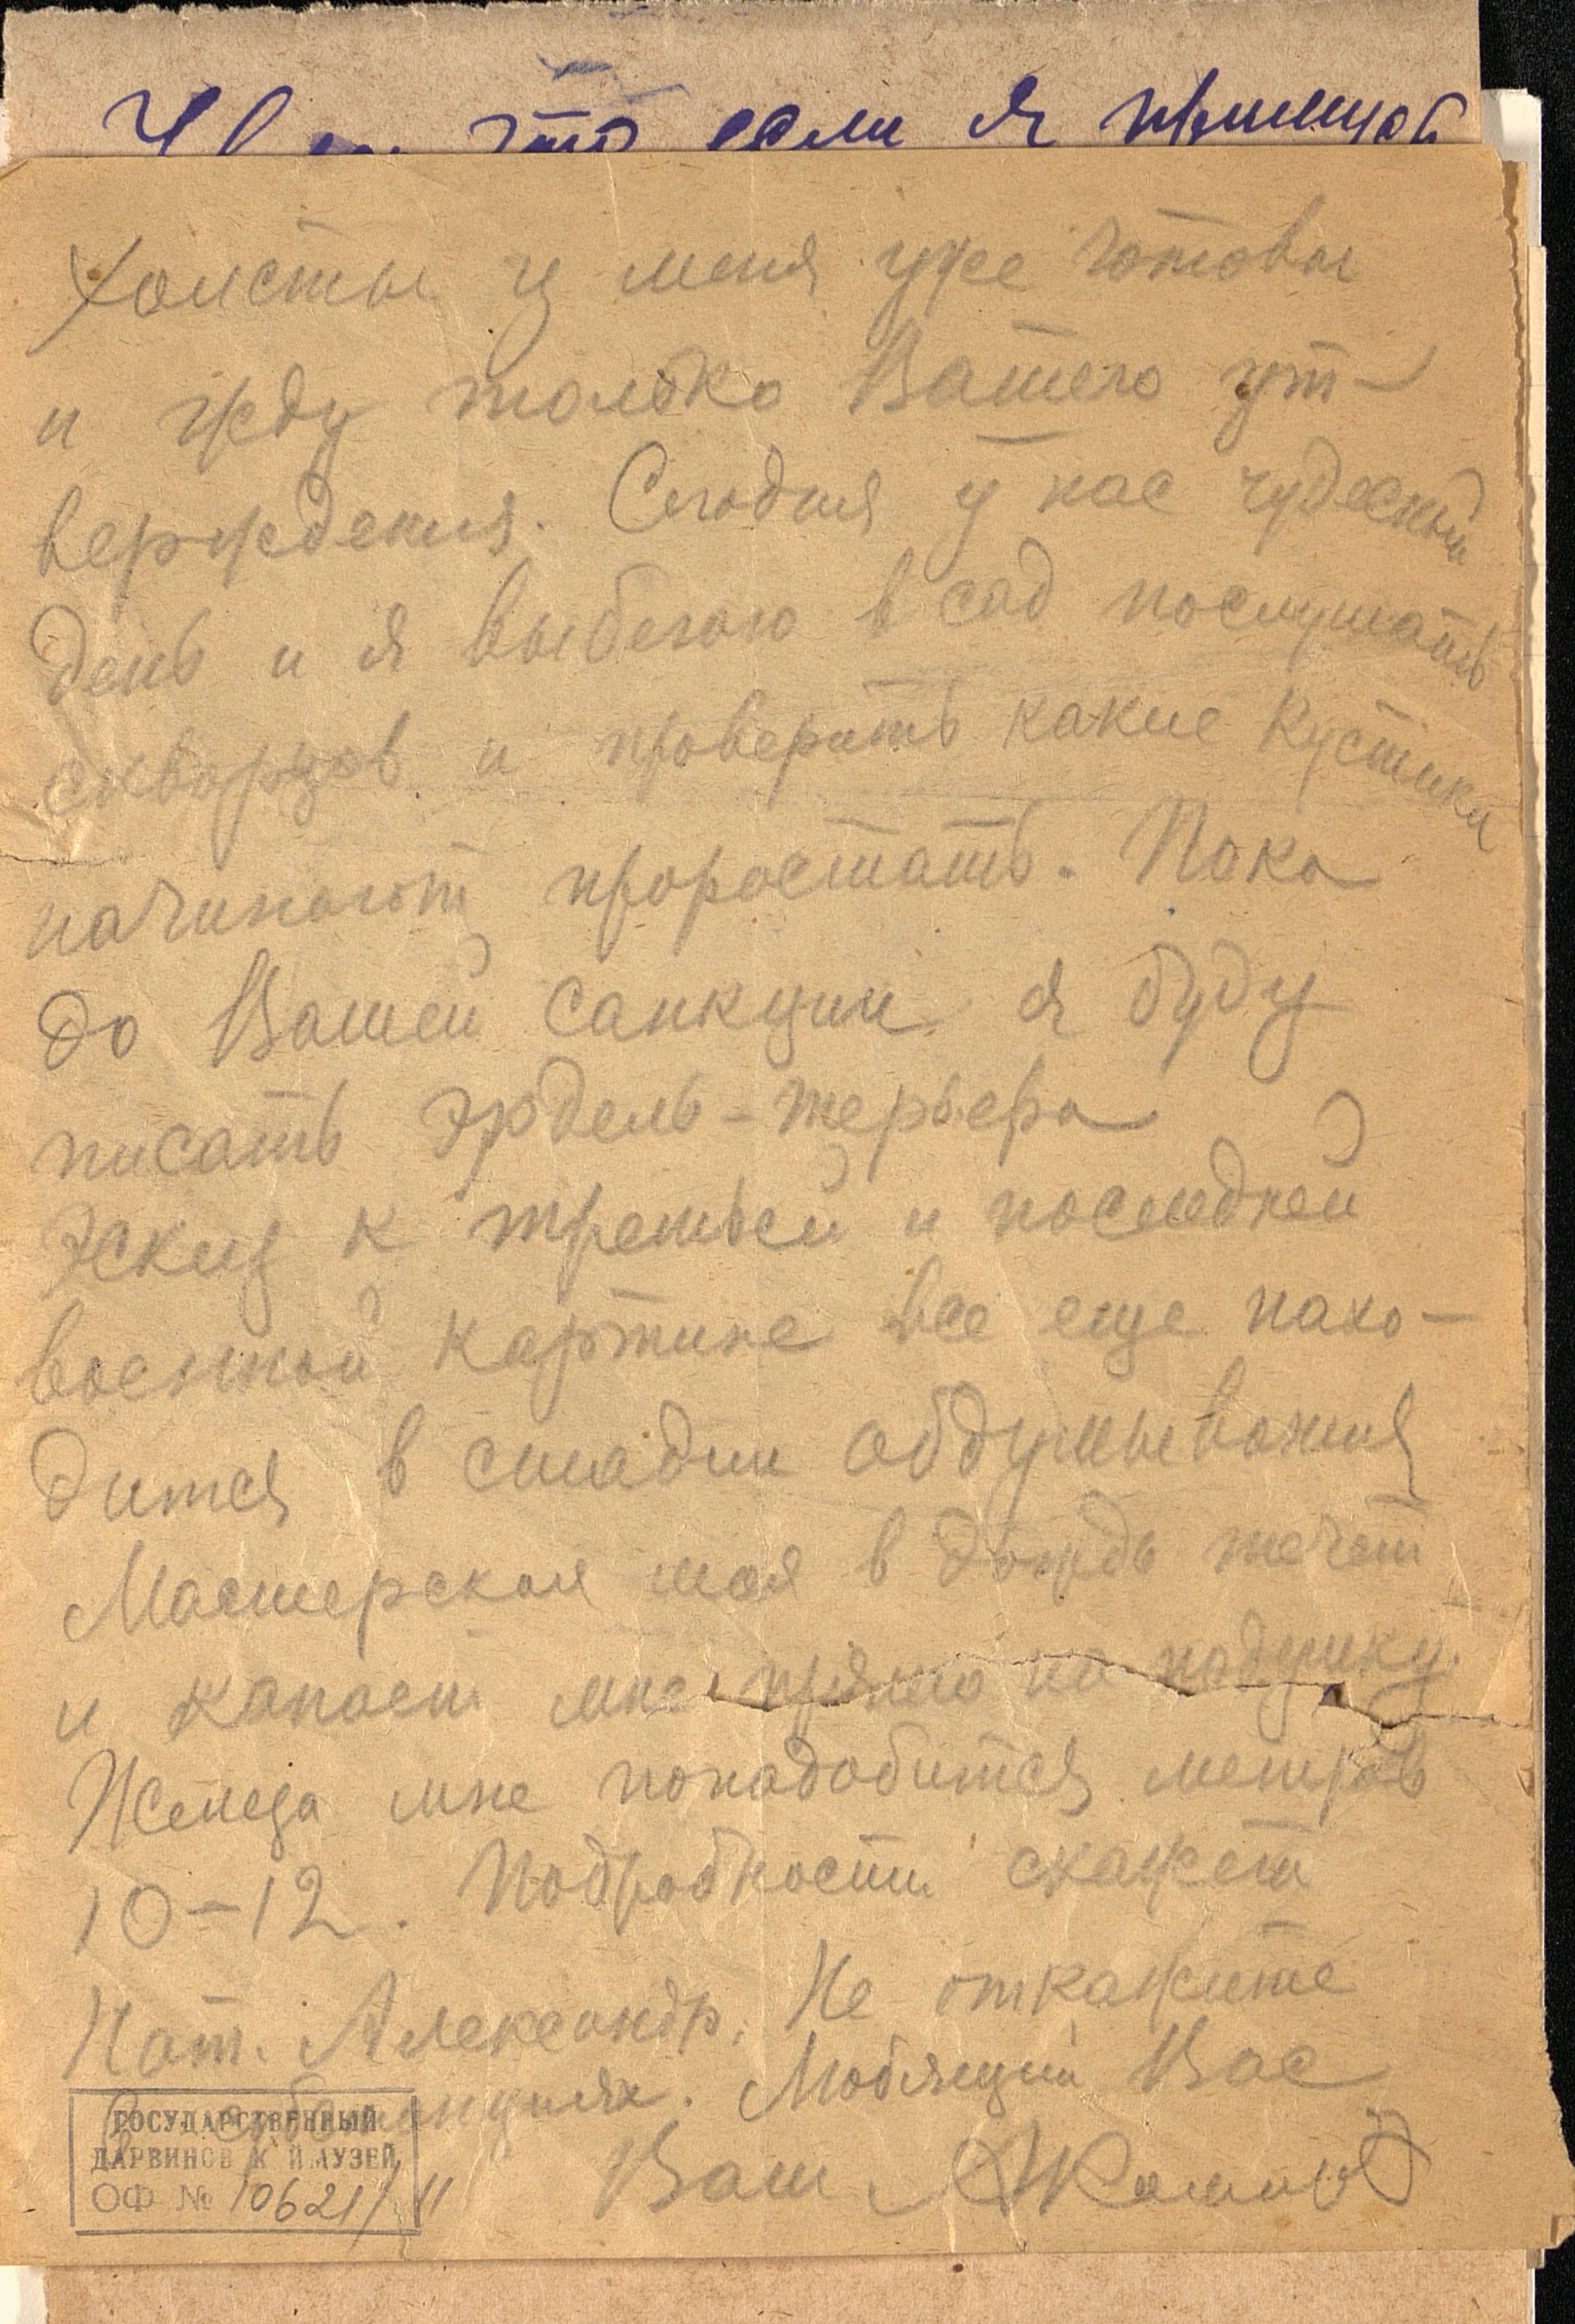 что если я
Холсты у меня уже готовы
и жду только Вашего ут-
верждения. Сегодня у нас чудесный
день и я выбегаю в сад послушать
скворцов и проверить какие кустики
начинают проростать. Пока
до Вашей санкции я буду
писать эрдель-терьера
Эскиз к третьей и последней
военной картине все еще нахо-
дится в стадии обдумывания
Мастерская моя в дождь течет
и капает мне прямо на подушку.
Железа мне понадобится метров
10-12. Подробности скажет
Нат. Александр. Не откажите
в субсидиях. Любящий Вас
Ваш
ГОСУДАРСТВЕННЫЙ
ДАРВИНОВСКИЙ МУЗЕЙ
ОФ № 10621/11